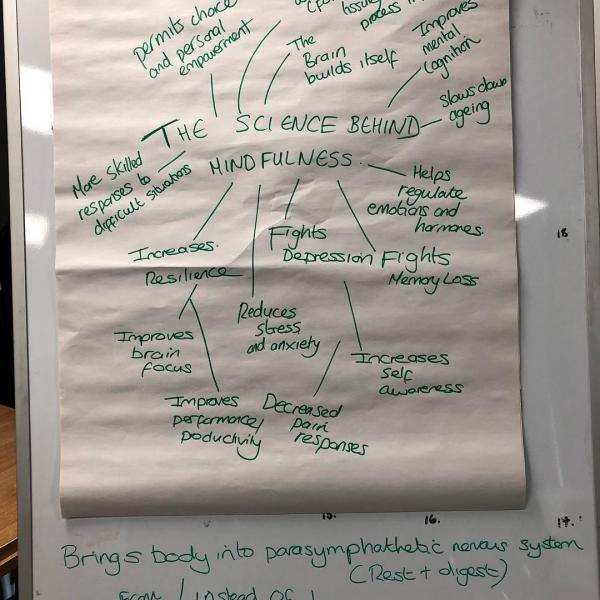 permits choice
and personal
empowerment
tissue
process in
The
Brain
builds itself
Improves
mental
Cognition
Slows down
ageing
THE SCIENCE BEHIND
MINDFULNESS.
More skilled
responses to
difficult situations
Helps
regulate
emotions and
hormones.
Increases.
Resilience
Fights
Depression
Fights
Memory Loss
Reduces
stress
and anxiety
Improves
brain
focus
Increases
self
awareness
Improves
performance/
poductivity
Decreased
pain
responses
18
15.
16.
17.
Brings body into parasymphathetic nervous system
(Rest + digest)
instead of